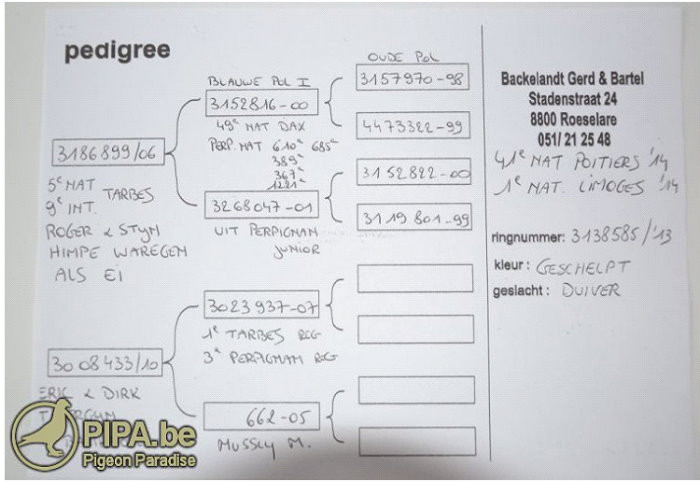 pedigree
OUDE POL
3157970-98
BLAUWE POL I
3152816-00
49e NAT DAX
PERP. NAT 610e 685e
389e
367e
4473322-99
3186899/06
5e NAT TARBES
9e INT.
ROGER & STYN
HIMPE WAREGEM
ALS EI
3152822-00
3268047-01
UIT PERPIGNAN
JUNIOR
3119801-99
3023937-07
1e TARBES RCG
3e PERPIGNAN RCG
3008433/10
ERIK & DIRK
662-05
MUSSLY M.
Backelandt Gerd & Bartel
Stadenstraat 24
8800 Roeselare
051/ 21 25 48
41e NAT POITIERS '14
1e NAT. LIMOGES '14
ringnummer: 3138585/'13
kleur: GESCHELPT
geslacht: DUIVER
PIPA.be
Pigeon Paradise